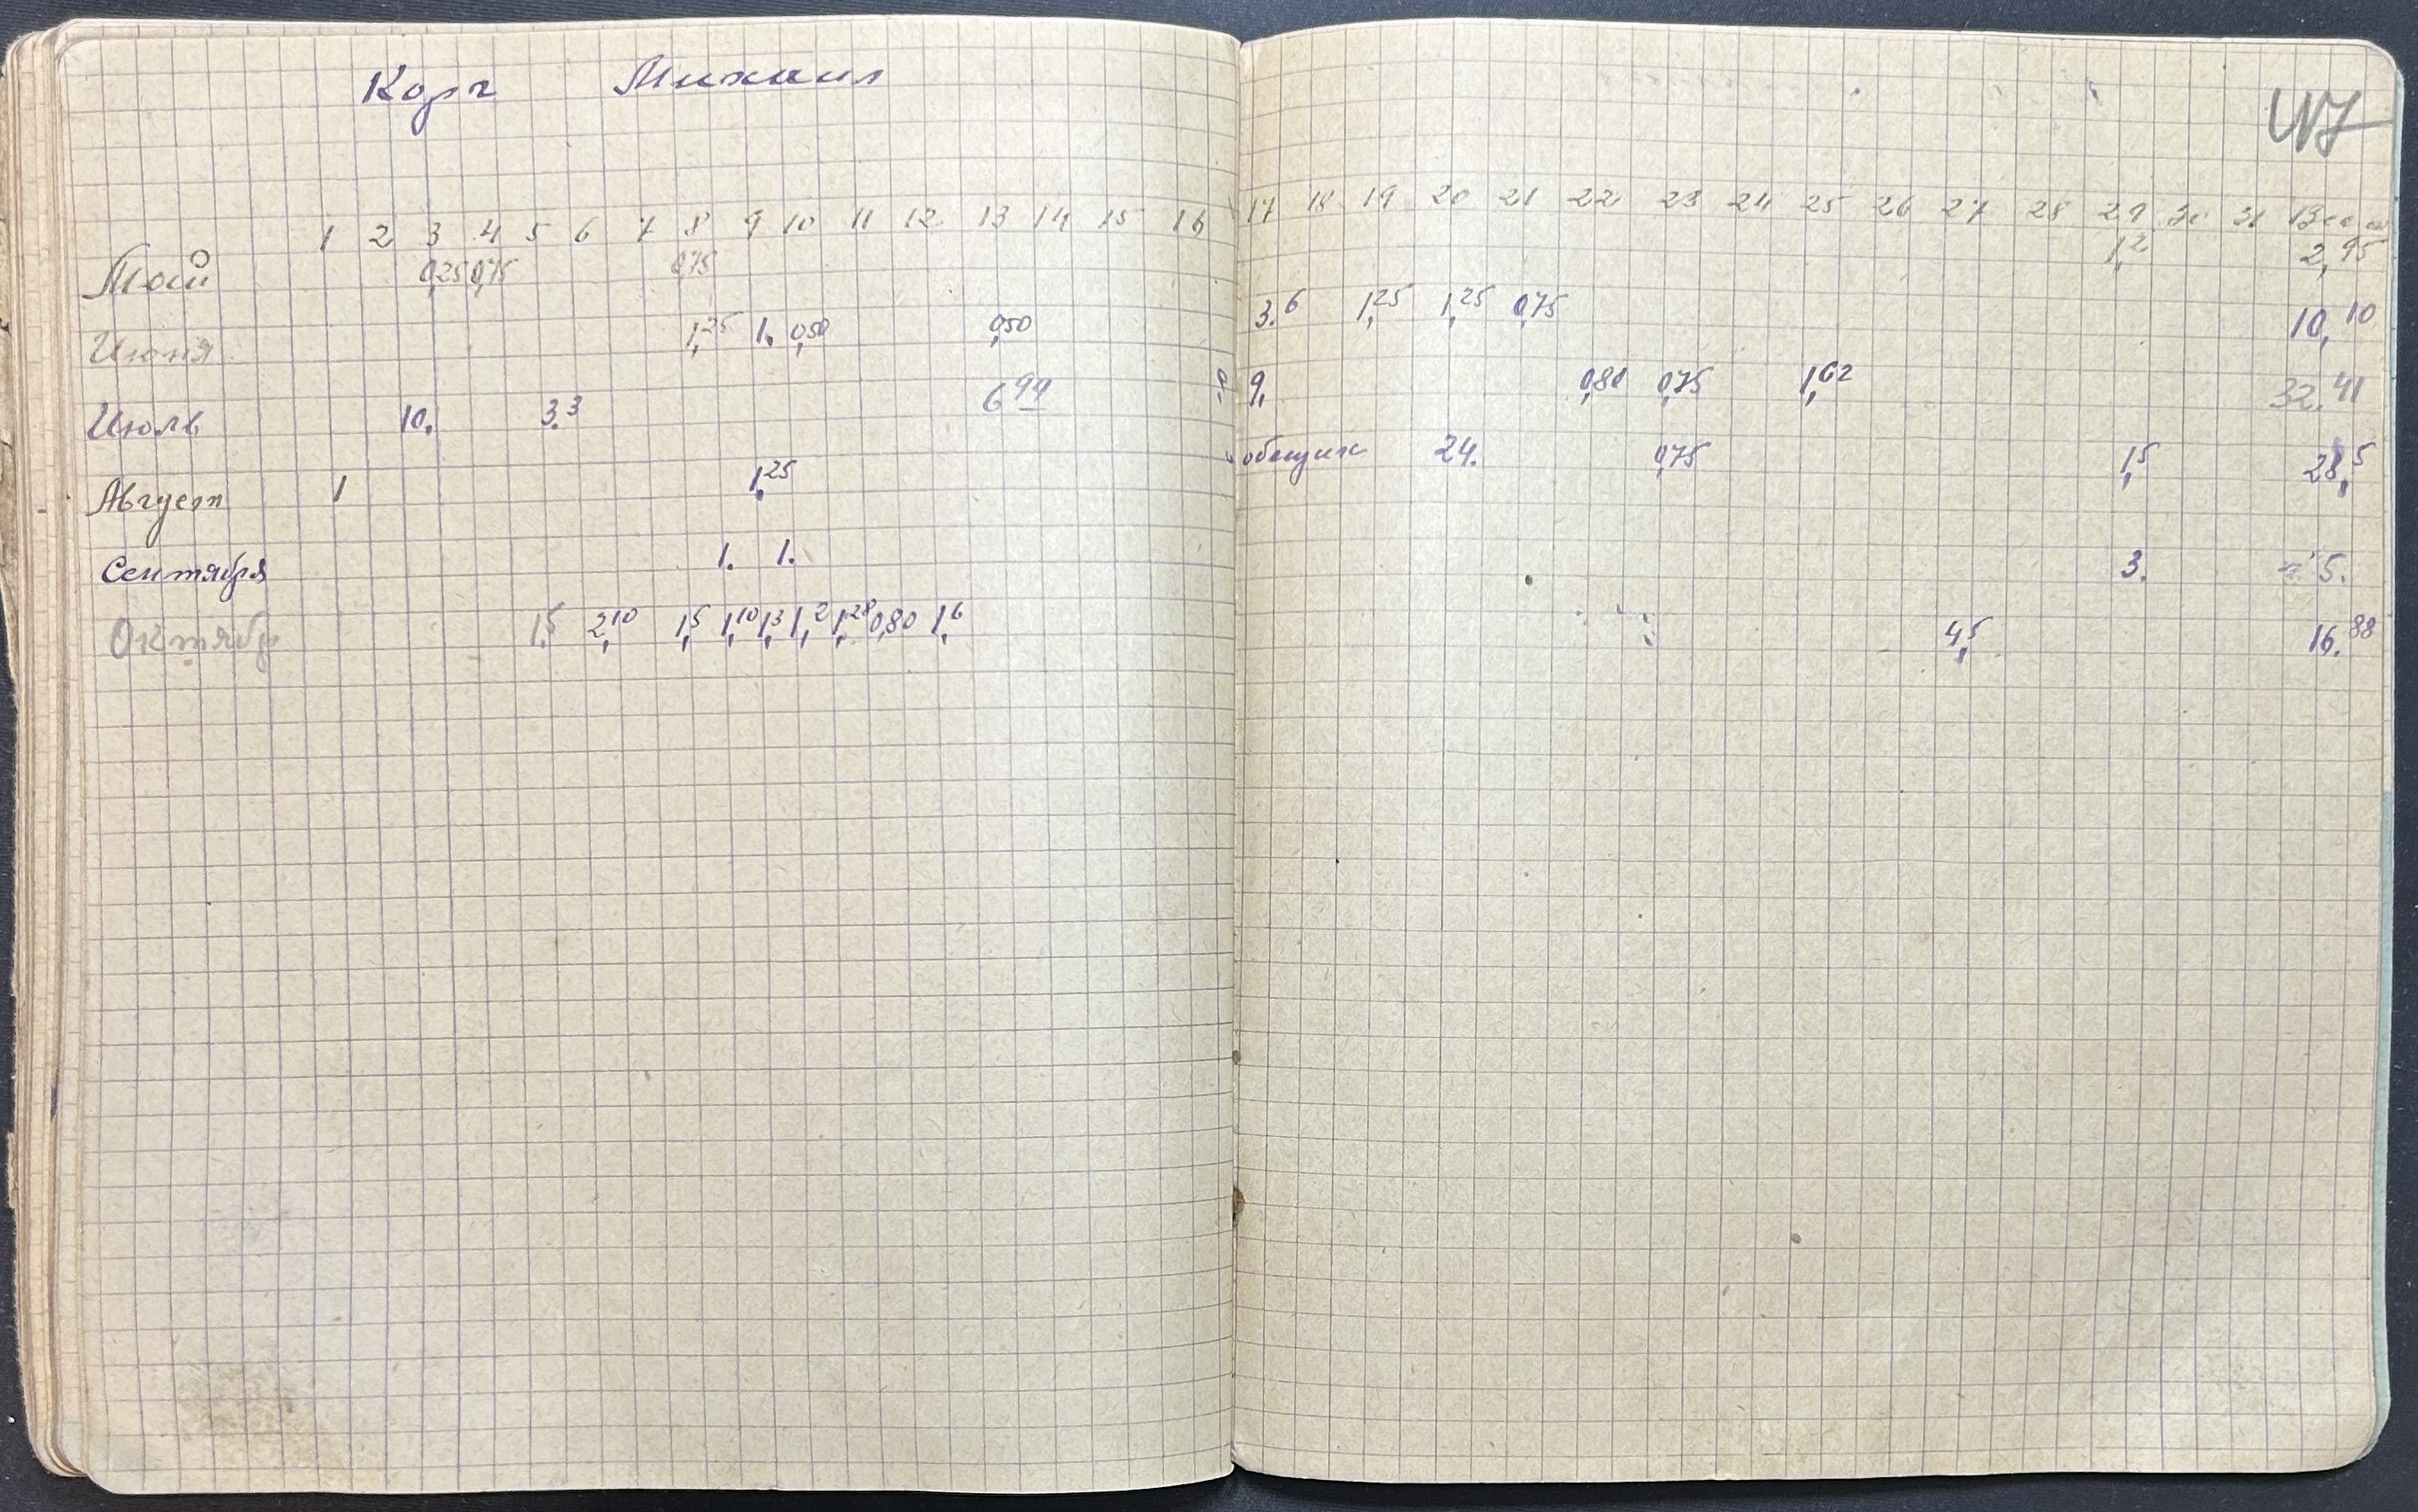 Корч Михаил
1 2 3 4 5 6 7 8 9 10 11 12 13 14 15 16 17 18 19 20 21 22 23 24 25 26 27 28 29 30 31 Всего
Моей 0,25 0,75 0,75 1,2 2,95
Июня 1,25 1. 0,50 0,50 3.6 1,25 1,25 0,75 10,10
Июль 10. 3.3 6 94 9. 0,80 0,75 1,62 32.41
Август 1 1,25 общик 24. 0,75 1,5 28,5
Сентября 1. 1. 3. 5.
Октябр 1,5 2,10 1,5 1,10 1,3 1,2 1,28 0,80 1,6 4,5 16.88